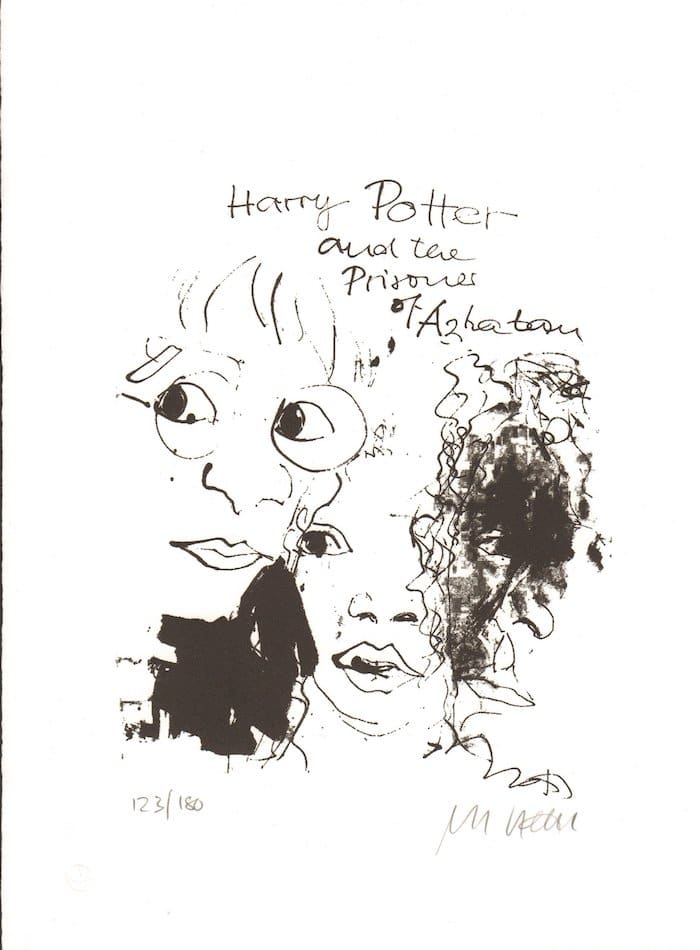 Harry Potter
and the
Prisoner
of Azkaban
123/180